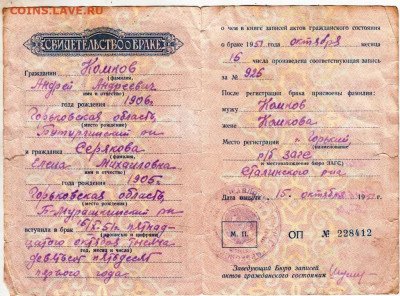 МОНЕТЫ.SU
COINS.SU
СВИДЕТЕЛЬСТВО о БРАКЕ
Гражданин Комков
(фамилия,
Андрей Андреевич
имя и отчество)
год рождения 1906 г.
Горьковская область,
(место рождения)
Бутурлинский р-н
и Гражданка Серякова
(фамилия,
Елена Михайловна
имя и отчество)
год рождения 1905 г.
Горьковская область,
(место рождения)
р-н
вступили в брак 15/X-51 г. пятнад-
(прописью и цифрами)
цатого октября тысяча
девятьсот пятьдесят
первого года
о чем в книге записей актов гражданского состояния
о браке 1951 года октября месяца
15 числа произведена соответствующая запись
за № 925
После регистрации брака присвоены фамилии:
мужу Комков
жене Комкова
Место регистрации г. Горький
(наименование
п/б ЗАГС
и местонахождение бюро ЗАГС)
Сталинского р-на
Дата выдачи 15 октября 1951 г.
М. П.
ОП № 228412
Заведующий Бюро записей
актов гражданского состояния